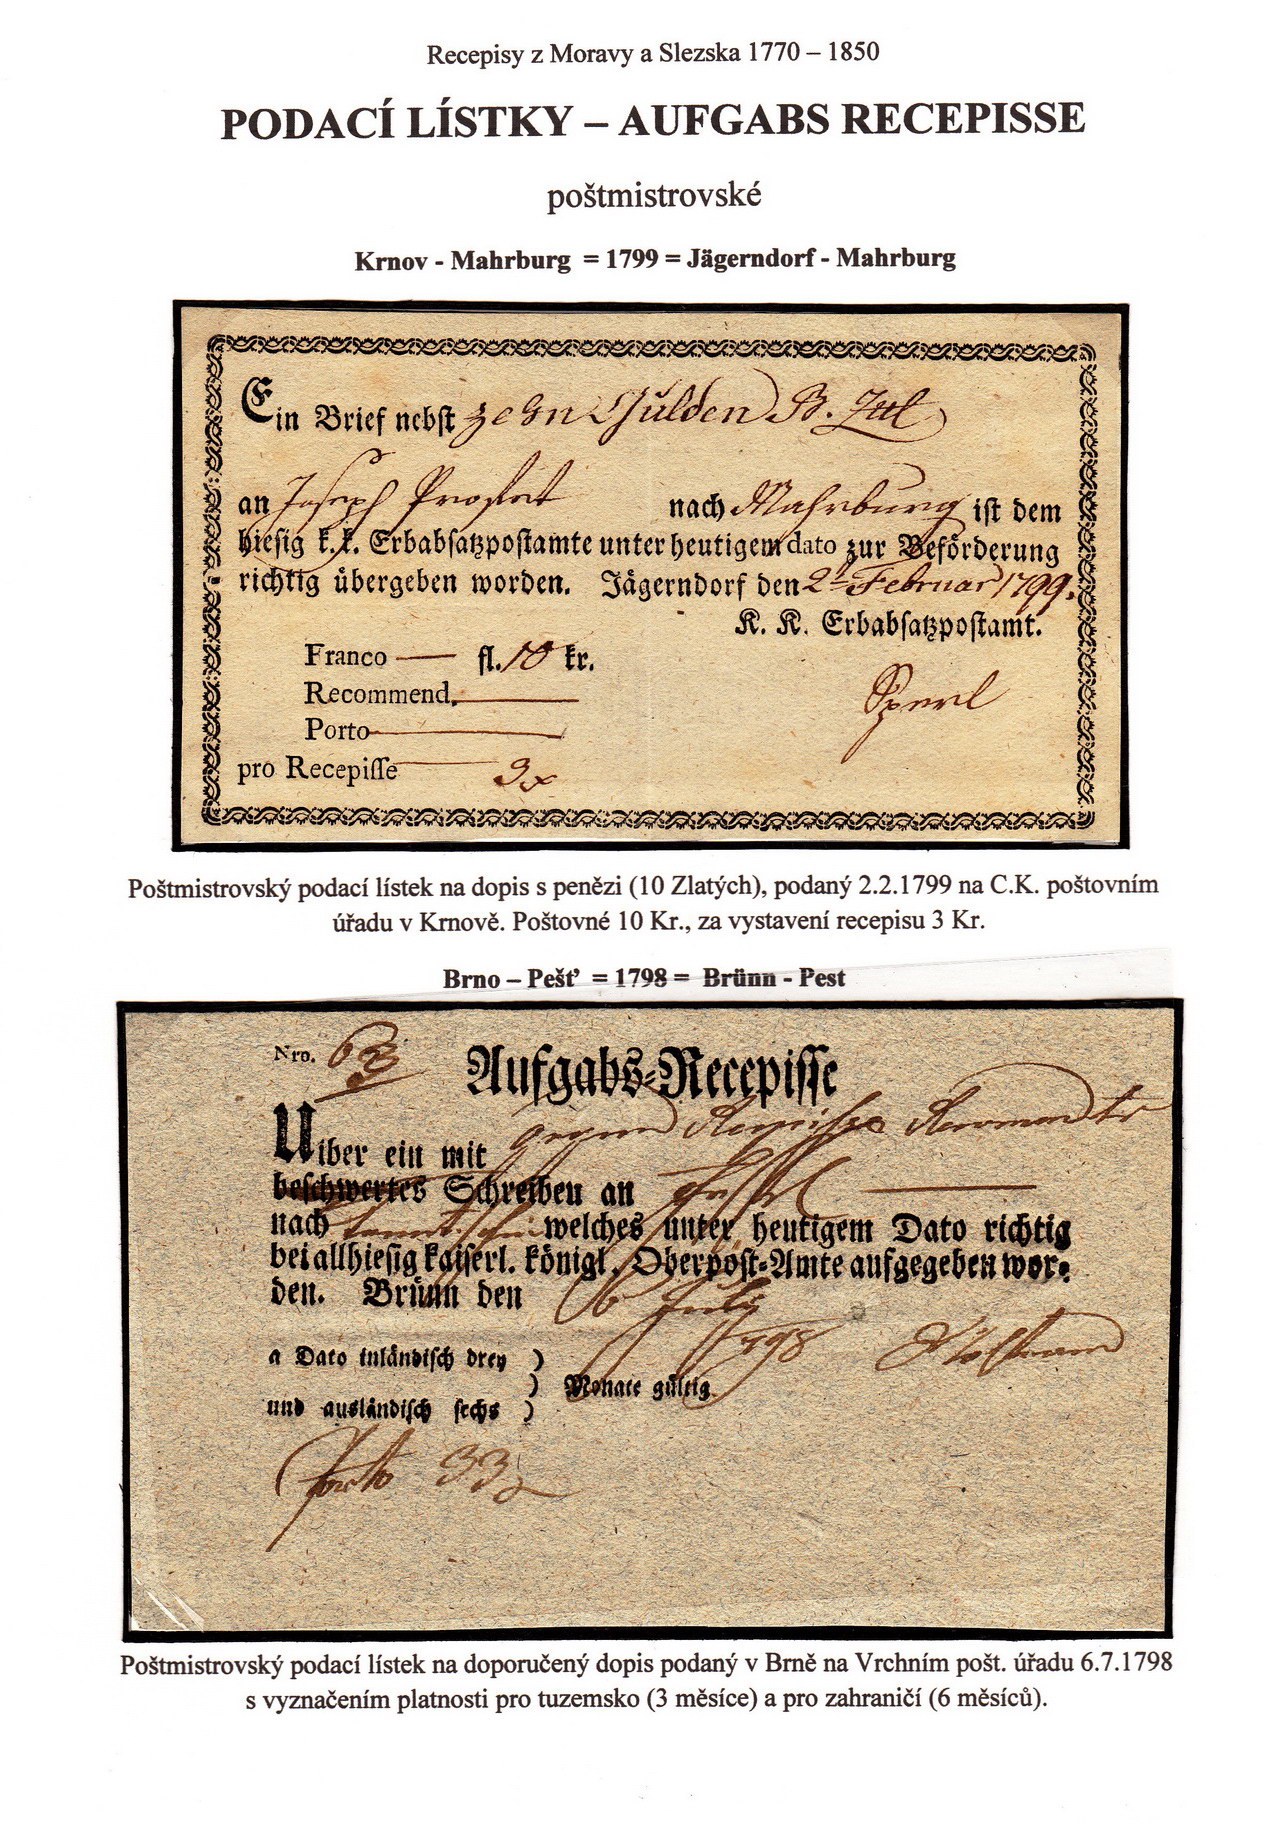 Recepisy z Moravy a Slezska 1770 – 1850
PODACÍ LÍSTKY – AUFGABS RECEPISSE
poštmistrovské
Krnov - Mahrburg = 1799 = Jägerndorf - Mahrburg
Ein Brief nebst zehn Gulden B. Zttl
an Joseph nach Mahrburg ist dem
hiesig k. k. Erbabsatzpostamte unter heutigem dato zur Beförderung
richtig übergeben worden. Jägerndorf den 2t Februar 1799.
K. K. Erbabsatzpostamt.
Franco — fl. 10 kr.
Sperl
Recommend.
Porto
pro Recepisse 3x
Poštmistrovský podací lístek na dopis s penězi (10 Zlatých), podaný 2.2.1799 na C.K. poštovním
úřadu v Krnově. Poštovné 10 Kr., za vystavení recepisu 3 Kr.
Brno – Pešť = 1798 = Brünn - Pest
Nro. 63
Aufgabs-Recepisse
Uiber ein mit gegen
beschwertes Schreiben an
nach welches unter heutigem Dato richtig
bei allhiesig kaiserl. königl. Oberpost-Amte aufgegeben wor-
den. Brünn den 6 July
798
a Dato inländisch drey )
) Monate gültig.
und ausländisch sechs )
Porto 33
Poštmistrovský podací lístek na doporučený dopis podaný v Brně na Vrchním pošt. úřadu 6.7.1798
s vyznačením platnosti pro tuzemsko (3 měsíce) a pro zahraničí (6 měsíců).